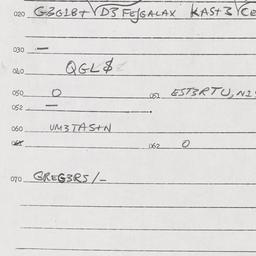 020 G3G1B+ VD3 FE GALAX KAST3
030 —
040 QGL$
050 O 051 EST3RTU,N1
052 —
060 UM3TAS+N
062 O
070 GREG3RS/-